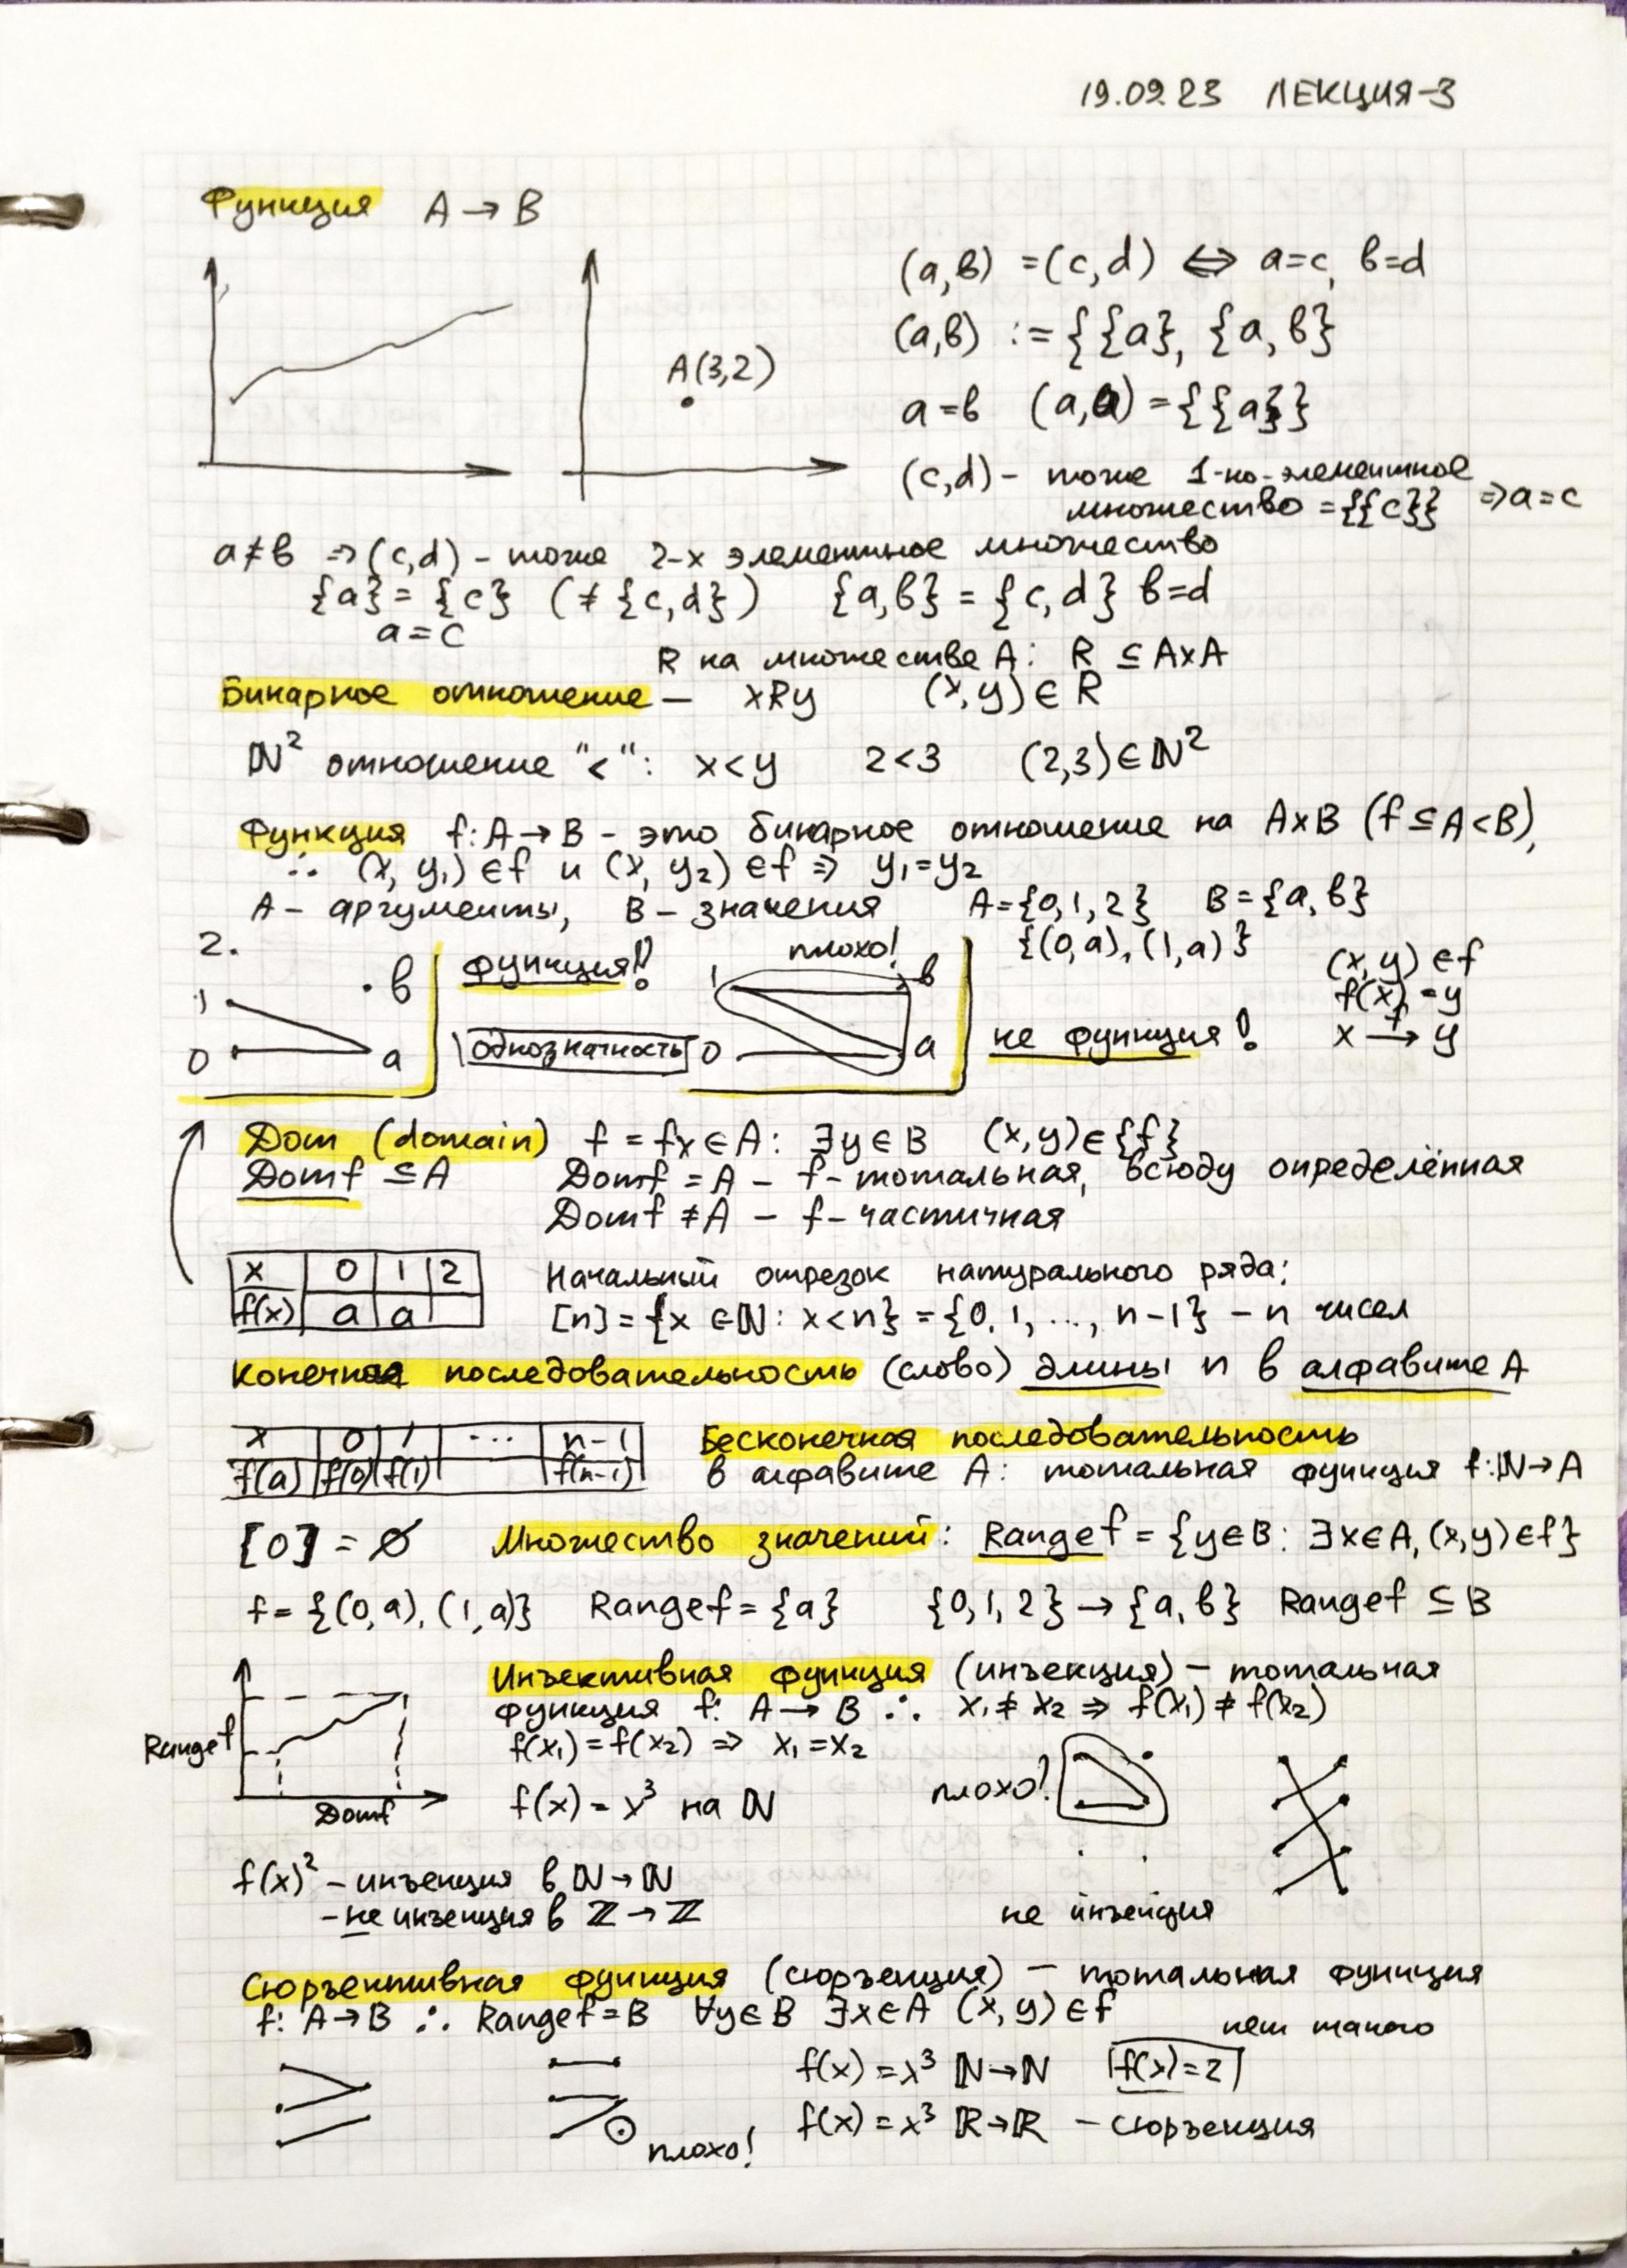 19.09.23 ЛЕКЦИЯ-3
Функция A → B
A(3,2)
(a,b) = (c,d) ⇔ a=c, b=d
(a,b) := {{a}, {a,b}
a=b (a,a) = {{a}}
(c,d) - тоже 1-но-элементное
множество = {{c}} ⇒ a=c
a≠b ⇒ (c,d) - тоже 2-х элементное множество
{a} = {c} (≠ {c,d}) {a,b} = {c,d} b=d
a=c
R на множестве A: R ⊆ A×A
Бинарное отношение — xRy (x,y) ∈ R
ℕ² отношение "<": x<y 2<3 (2,3)∈ℕ²
Функция f: A→B - это бинарное отношение на A×B (f ⊆ A<B),
∴ (x, y₁) ∈f и (x, y₂) ∈f ⇒ y₁=y₂
A - аргументы, B - значения A={0,1,2} B={a,b}
{(0,a), (1,a)}
2.
1 b
0 a
функция!!
однозначность
плохо!
1 b
0 a
не функция!
(x,y) ∈f
f(x) = y
x →f y
Dom (domain) f = {x∈A: ∃y∈B (x,y)∈{f}
Domf ⊆A Domf = A - f-тотальная, всюду определённая
Domf ≠A - f-частичная
x 0 1 2
f(x) a a
Начальный отрезок натурального ряда:
[n] = {x ∈ℕ: x<n} = {0, 1, ..., n-1} - n чисел
Конечная последовательность (слово) длины n в алфавите A
x 0 1 ... n-1
f(a) f(0) f(1) f(n-1)
Бесконечная последовательность
в алфавите A: тотальная функция f:ℕ→A
[0] = ∅ Множество значений: Rangef = {y∈B: ∃x∈A, (x,y)∈f}
f = {(0,a), (1,a)} Rangef = {a} {0,1,2} → {a,b} Rangef ⊆ B
Rangef
Domf
Инъективная функция (инъекция) - тотальная
функция f: A→B ∴ x₁≠x₂ ⇒ f(x₁) ≠ f(x₂)
f(x₁)=f(x₂) ⇒ x₁=x₂
f(x) = x³ на ℕ
плохо!
f(x)² - инъекция в ℕ→ℕ
- не инъекция в ℤ→ℤ
не инъекция
Сюръективная функция (сюръекция) - тотальная функция
f: A→B ∴ Rangef=B ∀y∈B ∃x∈A (x,y)∈f
нет такого
f(x) = x³ ℕ→ℕ f(x)=2
f(x) = x³ ℝ→ℝ - сюръекция
плохо!